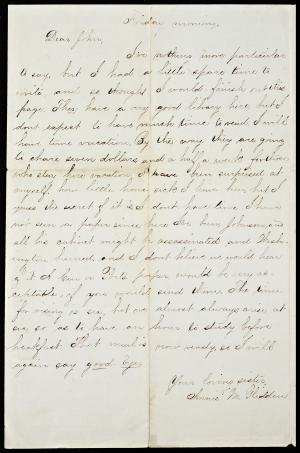 Friday morning,
Dear John,
I've nothing more particular
to say, but I had a little spare time to
write and so thought I would finish out this
page. They have a very good library here but I
dont expect to have much time to read. I will
have time vacation. By the way they are going
to charge seven dollars and a half a week for those
who stay here vacation. I have been surprised at
myself how little home sick I have been, but I
guess the secret of it is I dont have time. I have
not seen a paper since here Johnson and
all his cabinet might be assassinated and Wash-
ington burned, and I don't believe we would hear
of it. A paper would be very ac-
ceptable, if you would send them. The time
for rising is six, but we almost always arise at
five so as to have an hour to study before
breakfast. That meal is now ready, so I will
again say good-bye,
Your loving sister,
Annie M.